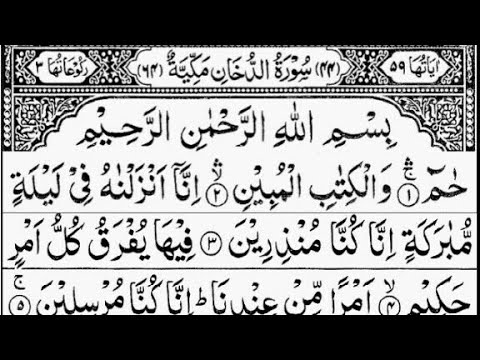 اٰیَاتُهَا ٥٩ (٤٤) سُوْرَةُ الدُّخَانِ مَكِّیَّةٌ (٦٤) رُكُوْعَاتُهَا ٣
بِسْمِ اللّٰهِ الرَّحْمٰنِ الرَّحِیْمِ
حٰمٓ ۚۛ﴿١﴾ وَالْكِتٰبِ الْمُبِیْنِ ۙۛ﴿٢﴾ اِنَّاۤ اَنْزَلْنٰهُ فِیْ لَیْلَةٍ
مُّبٰرَكَةٍ اِنَّا كُنَّا مُنْذِرِیْنَ ﴿٣﴾ فِیْهَا یُفْرَقُ كُلُّ اَمْرٍ
حَكِیْمٍ ۙ﴿٤﴾ اَمْرًا مِّنْ عِنْدِنَا ؕ اِنَّا كُنَّا مُرْسِلِیْنَ ۚ﴿٥﴾